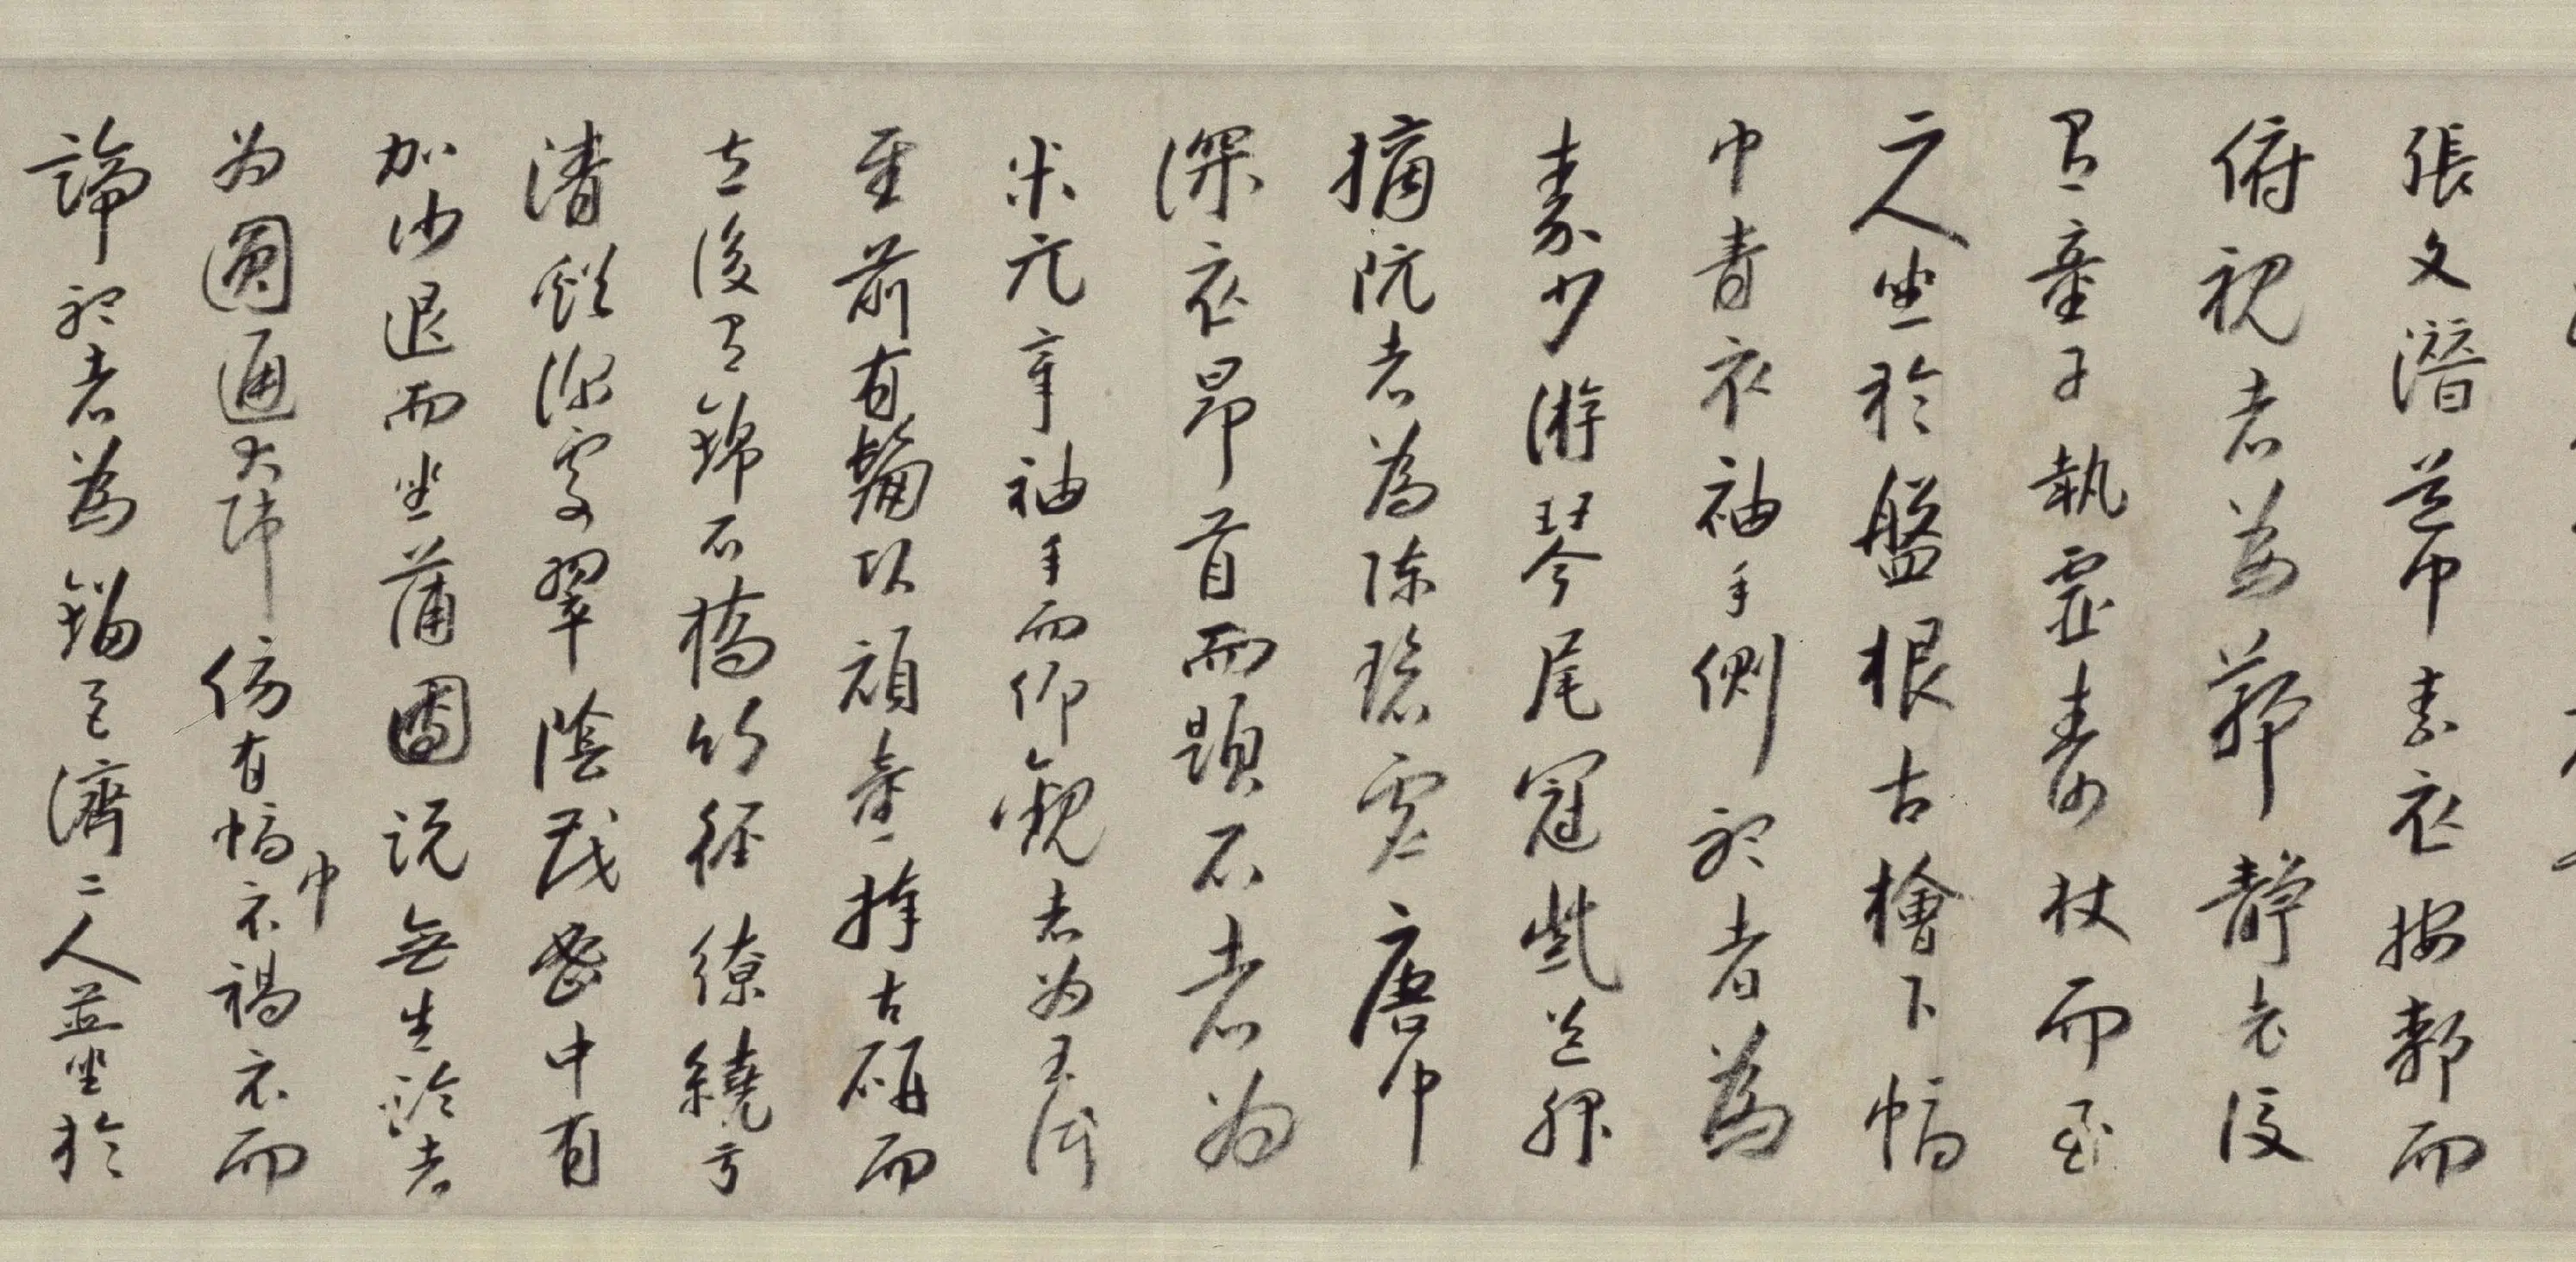 張文潛道巾素衣按厀而
俯視者為鄭靜老後
有童子執靈壽杖而立
二人坐於盤根古檜下幅
巾青衣袖手側聽者為
秦少游琴尾冠紫道服
摘阮者為陳碧虛唐巾
深衣昂首而題石者為
米元章袖手而仰觀者為王仲
至前有鬅頭頑童捧古硯而
立後有錦石橋竹徑繚繞於
清谿深處翠陰茂密中有
加沙退而坐蒲團說無生論者
為圓通大師傍有幅巾衣褐衣而
諦聽者為劉巨濟二人並坐於